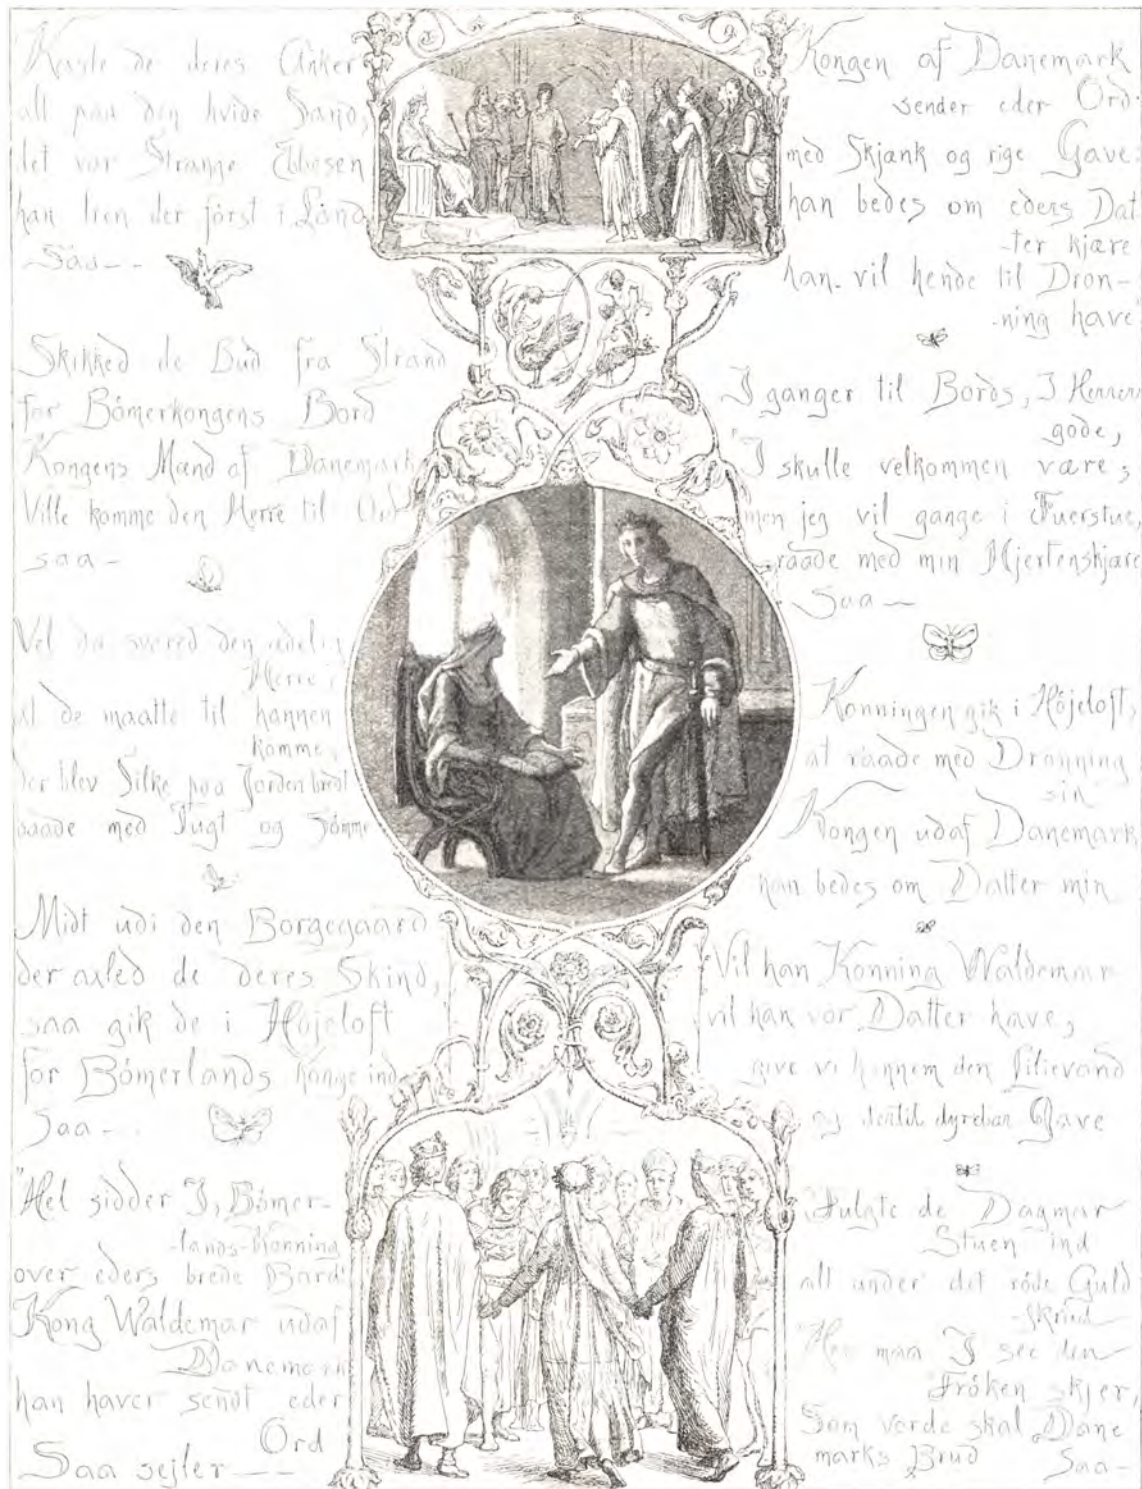 Kaste de deres Anker
alt paa den hvide Sand,
det var Strange Ebbesen
han tren der först i Land
Saa--
Skikked de Bud fra Strand
for Bömerkongens Bord
Kongens Mænd af Danemark
Ville komme den Herre til Ord
saa-
Vel da svared den ædelig
Herre
at de maatte til hannem
komme,
der blev Silke paa Jorden bredt
baade med Tugt og Sömme
Midt udi den Borgegaard
der axled de deres Skind,
saa gik de i Höjeloft
for Bömerlands Konge ind
Saa--
"Hel sidder I, Bömer-
-lands-Konning
over eders brede Bord!
Kong Waldemar udaf
Danemark
han haver sendt eder
Ord
Saa sejler--
Kongen af Danemark
sender eder Ord:
med Skjænk og rige Gave:
han bedes om eders Dat
-ter kjære
han vil hende til Dron-
-ning have"
I ganger til Bords, I Herrer
gode,
"I skulle velkommen være;
men jeg vil gange i Fuerstue,
raade med min Hjertenskjære
Saa-
Konningen gik i Höjeloft,
at raade med Dronning
sin
Kongen udaf Danemark
han bedes om Datter min
Vil han Konning Waldemar
vil han vor Datter have,
give vi hannem den Lilievand
og dertil dyrebar Gave
Fulgte de Dagmar
Stuen ind
alt under det röde Guld
-skrud
"Her maa I see den
Fröken skjer,
Som vorde skal Dane
marks Brud Saa-